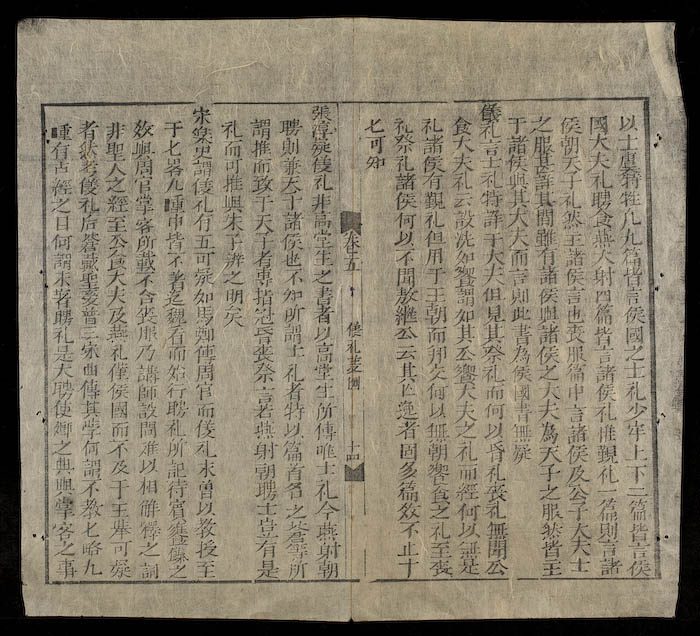 以士虞特牲凡九篇皆言侯國之士礼少牢上下二篇皆言侯
國大夫礼聘食燕大射四篇皆言諸侯礼惟覲礼一篇則言諸
侯朝天子礼然主諸侯言也喪服篇中言諸侯及公子大夫士
之服甚詳其間雖有諸侯與諸侯之大夫為天子之服然皆主
于諸侯與其大夫而言則此書為侯國書無疑
儀礼言士礼特詳于大夫但見其祭礼而何以昏礼喪礼無聞公
食大夫礼云設洗如饗謂如其公饗大夫之礼而經何以無是
礼諸侯有覲礼但用于王朝而邦交何以無朝饗食之礼至喪
礼祭礼諸侯何以不聞敖継公云其亡逸者固多篇數不止十
七可知
卷十五 儀礼 十四
張淳疑儀礼非高堂生之書者以高堂生所傳唯士礼今燕射朝
聘則兼天子諸侯也不知所謂士礼者特以篇首名之 等所
謂推而致于天子者專指冠昏喪祭言若燕射朝聘士豈有是
礼而可推與朱子辨之明矣
宋樂史謂儀礼有五可疑如馬鄭傳周官而儀礼未曾以教授至
于七畧九種中皆不著 魏晉而始行聘礼所記待賓饔餼之
數與周官掌客所載不合喪服乃講師設問難以相解釋之詞
非聖人之經至公食大夫及燕礼僅侯國而不及于王畢可疑
者然考儀礼后蒼戴聖慶普三家曲傳其學何謂不教七略九
種有古經之目何謂未著聘礼是大聘使卿之典與掌客之事